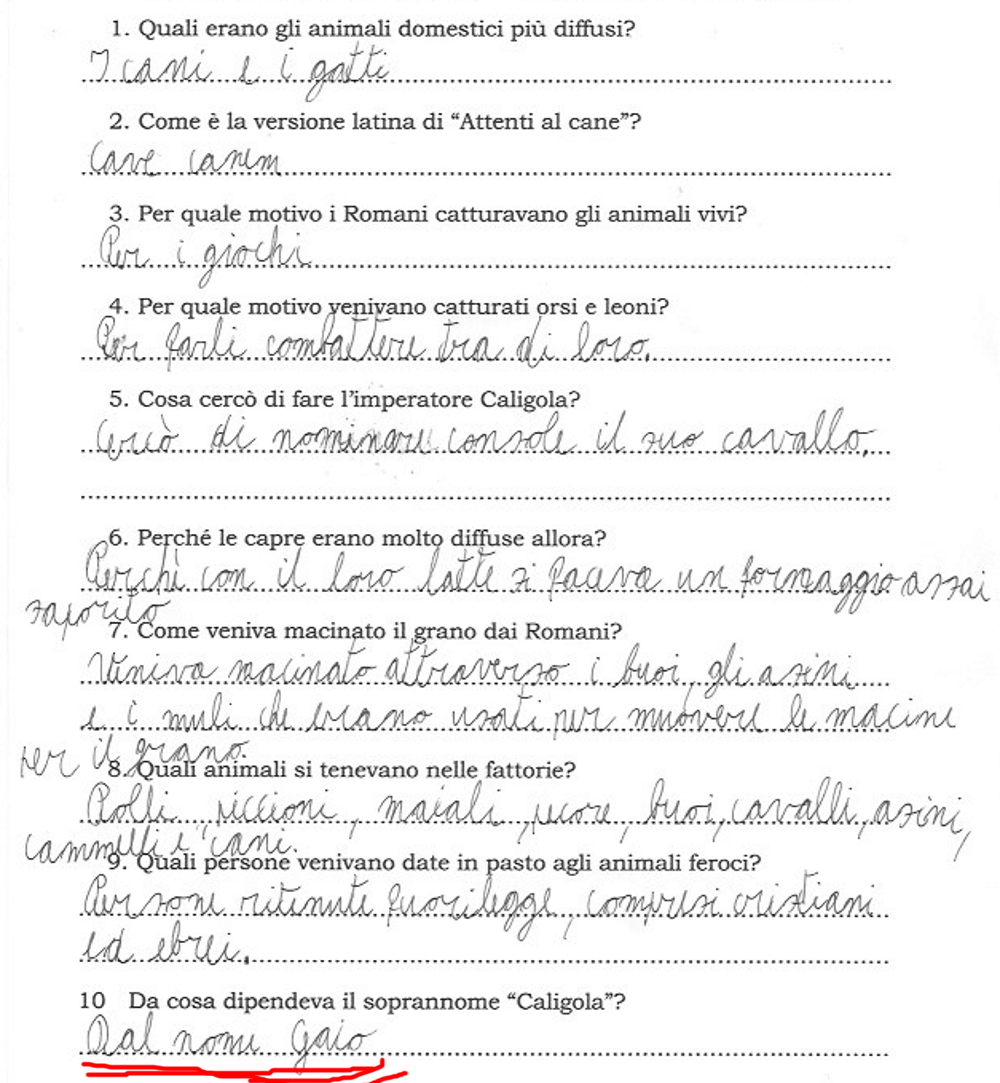 1. Quali erano gli animali domestici più diffusi?
I cani e i gatti
2. Come è la versione latina di “Attenti al cane”?
Cave canem
3. Per quale motivo i Romani catturavano gli animali vivi?
Per i giochi
4. Per quale motivo venivano catturati orsi e leoni?
Per farli combattere tra di loro.
5. Cosa cercò di fare l’imperatore Caligola?
Cercò di nominare console il suo cavallo.
6. Perché le capre erano molto diffuse allora?
Perchè con il loro latte si faceva un formaggio assai
saporito
7. Come veniva macinato il grano dai Romani?
Veniva macinato attraverso i buoi, gli asini
e i muli che erano usati per muovere le macine
per il grano.
8. Quali animali si tenevano nelle fattorie?
Polli, piccioni, maiali, pecore, buoi, cavalli, asini,
cammelli e cani.
9. Quali persone venivano date in pasto agli animali feroci?
Persone ritenute fuorilegge, compresi cristiani
ed ebrei.
10 Da cosa dipendeva il soprannome “Caligola”?
Dal nome Gaio